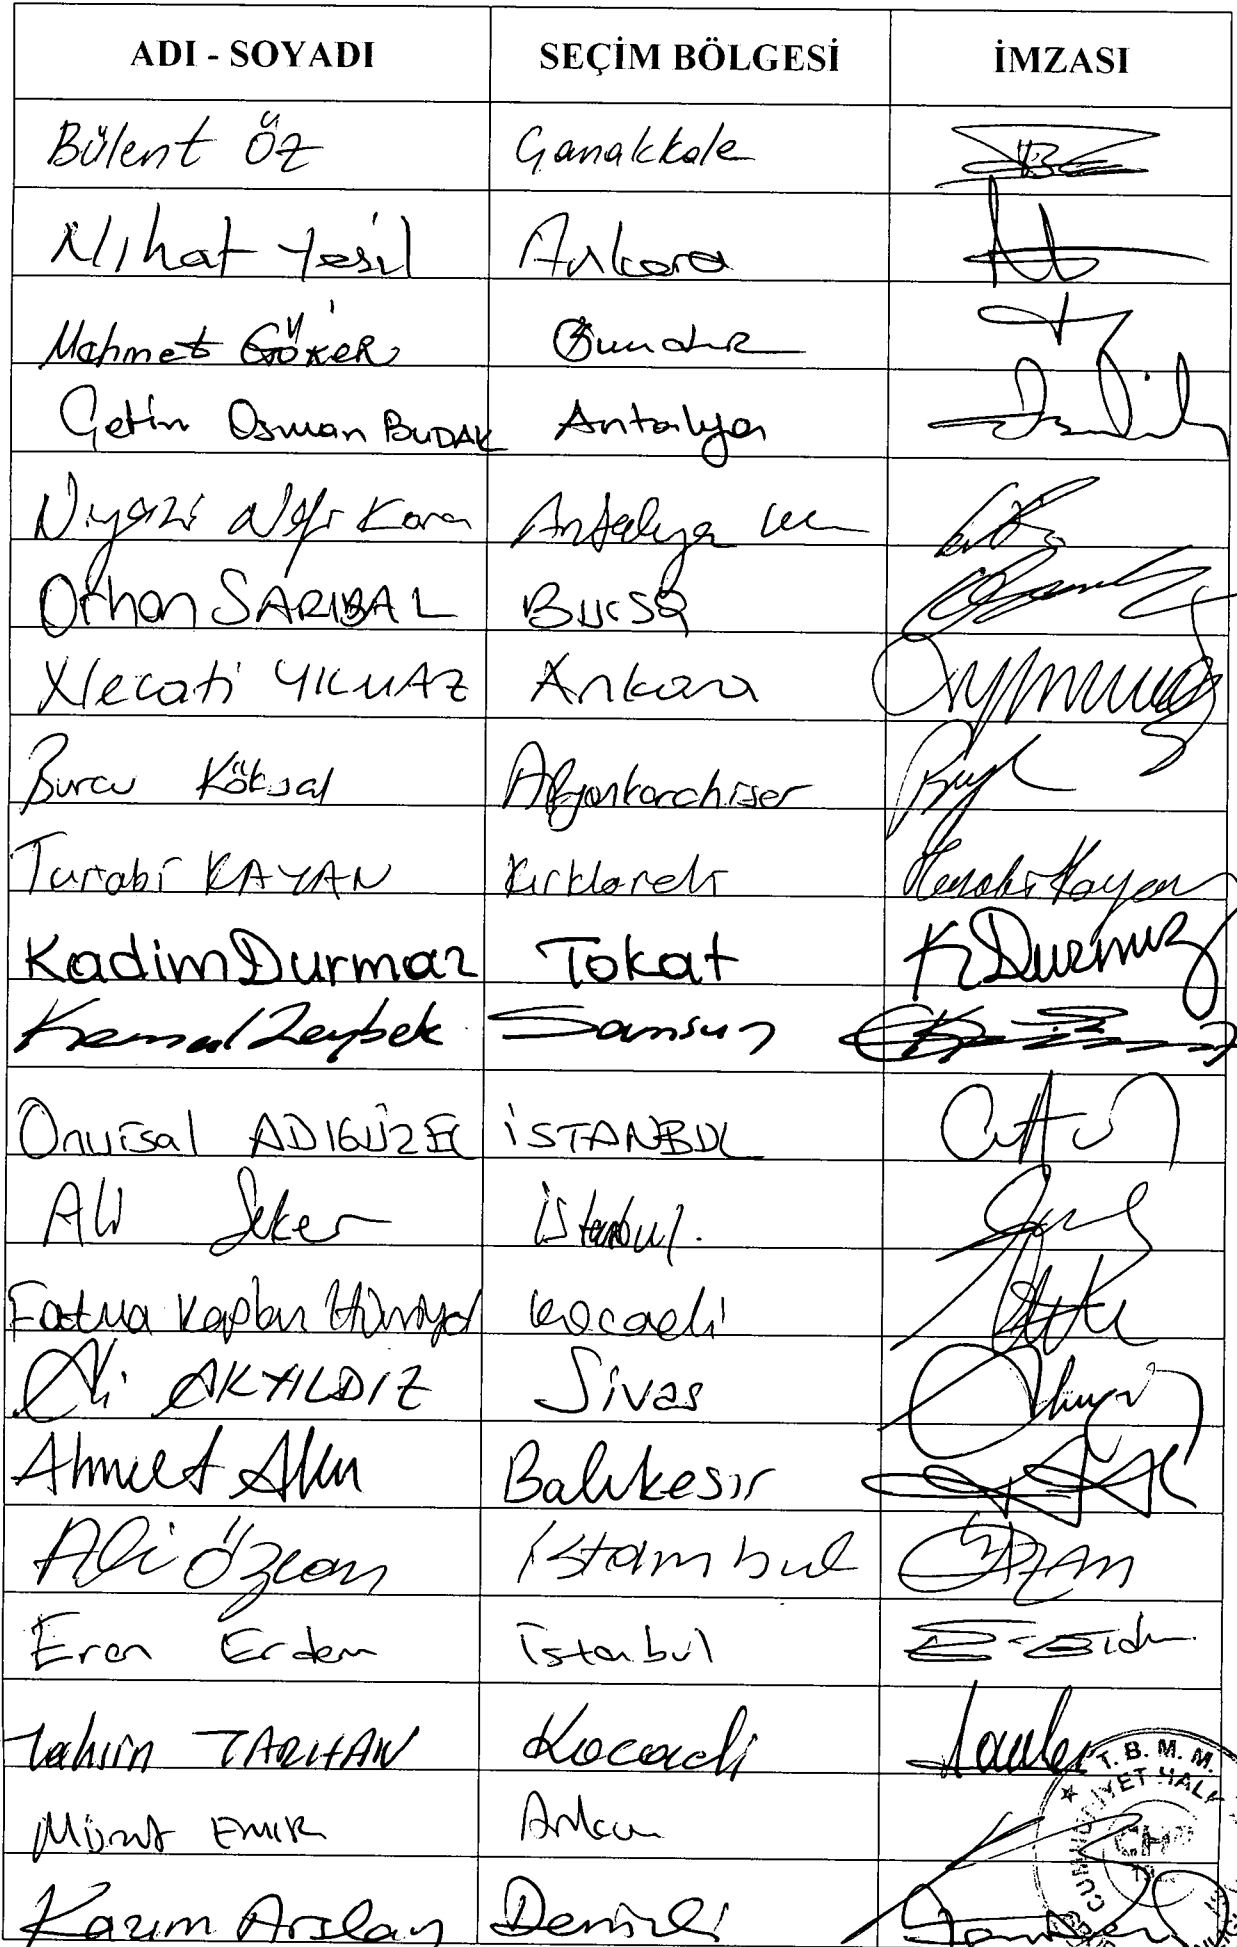 ADI - SOYADI SEÇİM BÖLGESİ İMZASI
Bülent Öz Çanakkale
Nihat Yeşil Ankara
Mehmet GÖKER Burdur
Çetin Osman BUDAK Antalya
Niyazi Nefi Kara Antalya
Orhan SARIBAL Bursa
Necati YILMAZ Ankara
Burcu Köksal Afyonkarahisar
Turabi KAYAN Kırklareli Turabi Kayan
Kadim Durmaz Tokat K Durmaz
Kemal Zeybek Samsun
Onursal ADIGÜZEL İSTANBUL
Ali Şeker İstanbul.
Fatma Kaplan Hürriyet Kocaeli
Ali AKYILDIZ Sivas
Ahmet Akın Balıkesir
Ali Özcan İstanbul
Eren Erdem İstanbul
Tahsin TARHAN Kocaeli
Murat EMİR Ankara
Kazım Arslan Denizli
T. B. M. M.
CUMHURİYET HALK
CHP